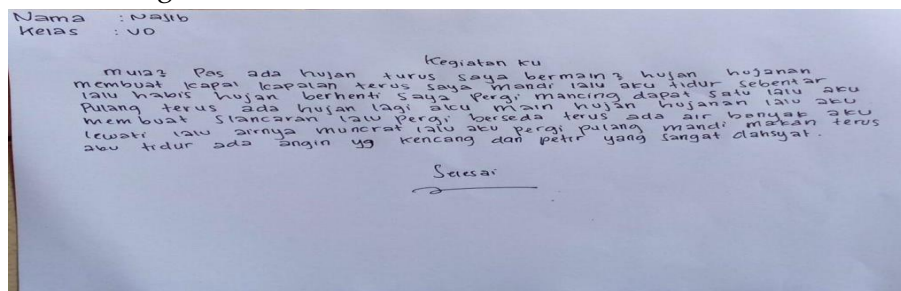 Nama : Najib
Kelas : VD
Kegiatan ku
mula2 Pas ada hujan turus saya bermain2 hujan hujanan
membuat kapal kapalan terus saya mandi lalu aku tidur sebentar
lalu habis hujan berhenti saya Pergi mancing dapat satu lalu aku
Pulang terus ada hujan lagi aku main hujan hujanan lalu aku
membuat Slancaran lalu Pergi berseda terus ada air banyak aku
lewati lalu airnya muncrat lalu aku pergi pulang mandi makan terus
aku tidur ada angin yg kencang dan petir yang sangat dahsyat.
Selesai